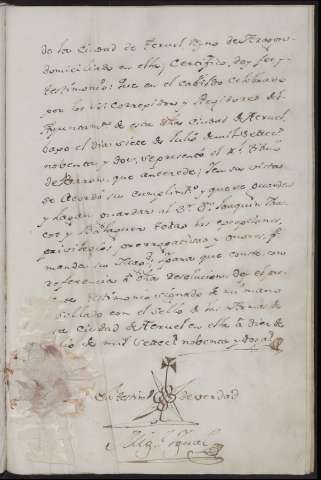 de la Ciudad de Teruel Reyno de Aragon
domiciliado en ella; Certifico, doy fee, y
testimonio: Que en el cabildo celebrado
por los SS. Corregidor y Regidores del
Ayuntam.to de esta dha Ciudad de Teruel,
bajo el dia siete de Julio de mil setec.s
nobenta y dos, se presentó el R.l titulo
de Barron, que antecede; i en su vista
se Acordó su cumplim.to y que se guarden
y hagan guardar al S.r D.n Joaquin
y todas las esepciones,
privilegios prerrogativas y onores, q.e
manda su Mag.d; y para que conste, con
referencia à dha resolucion, doy el pre
te testimonio signado de mi mano
sellado con el sello de las Armas de
la Ciudad de Teruel en ella à diez de
lio de mil setec.s nobenta y dos a.s
En testim.o de verdad
Mig.l